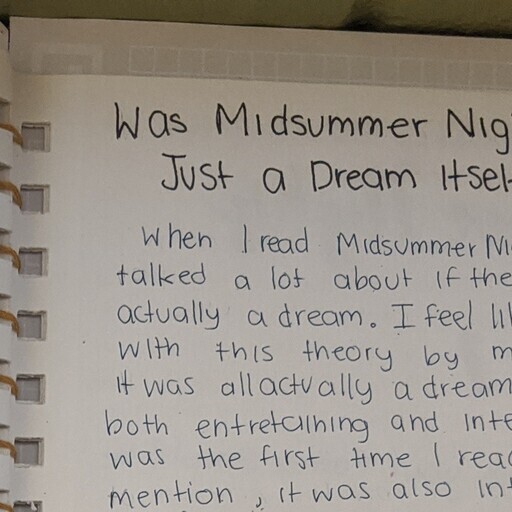 Was Midsummer Nig
Just a Dream Itsel
When I read Midsummer Ni
talked a lot about if the
actually a dream. I feel li
with this theory by m
it was all actually a dream
both entretaining and inte
was the first time I read
mention, it was also int